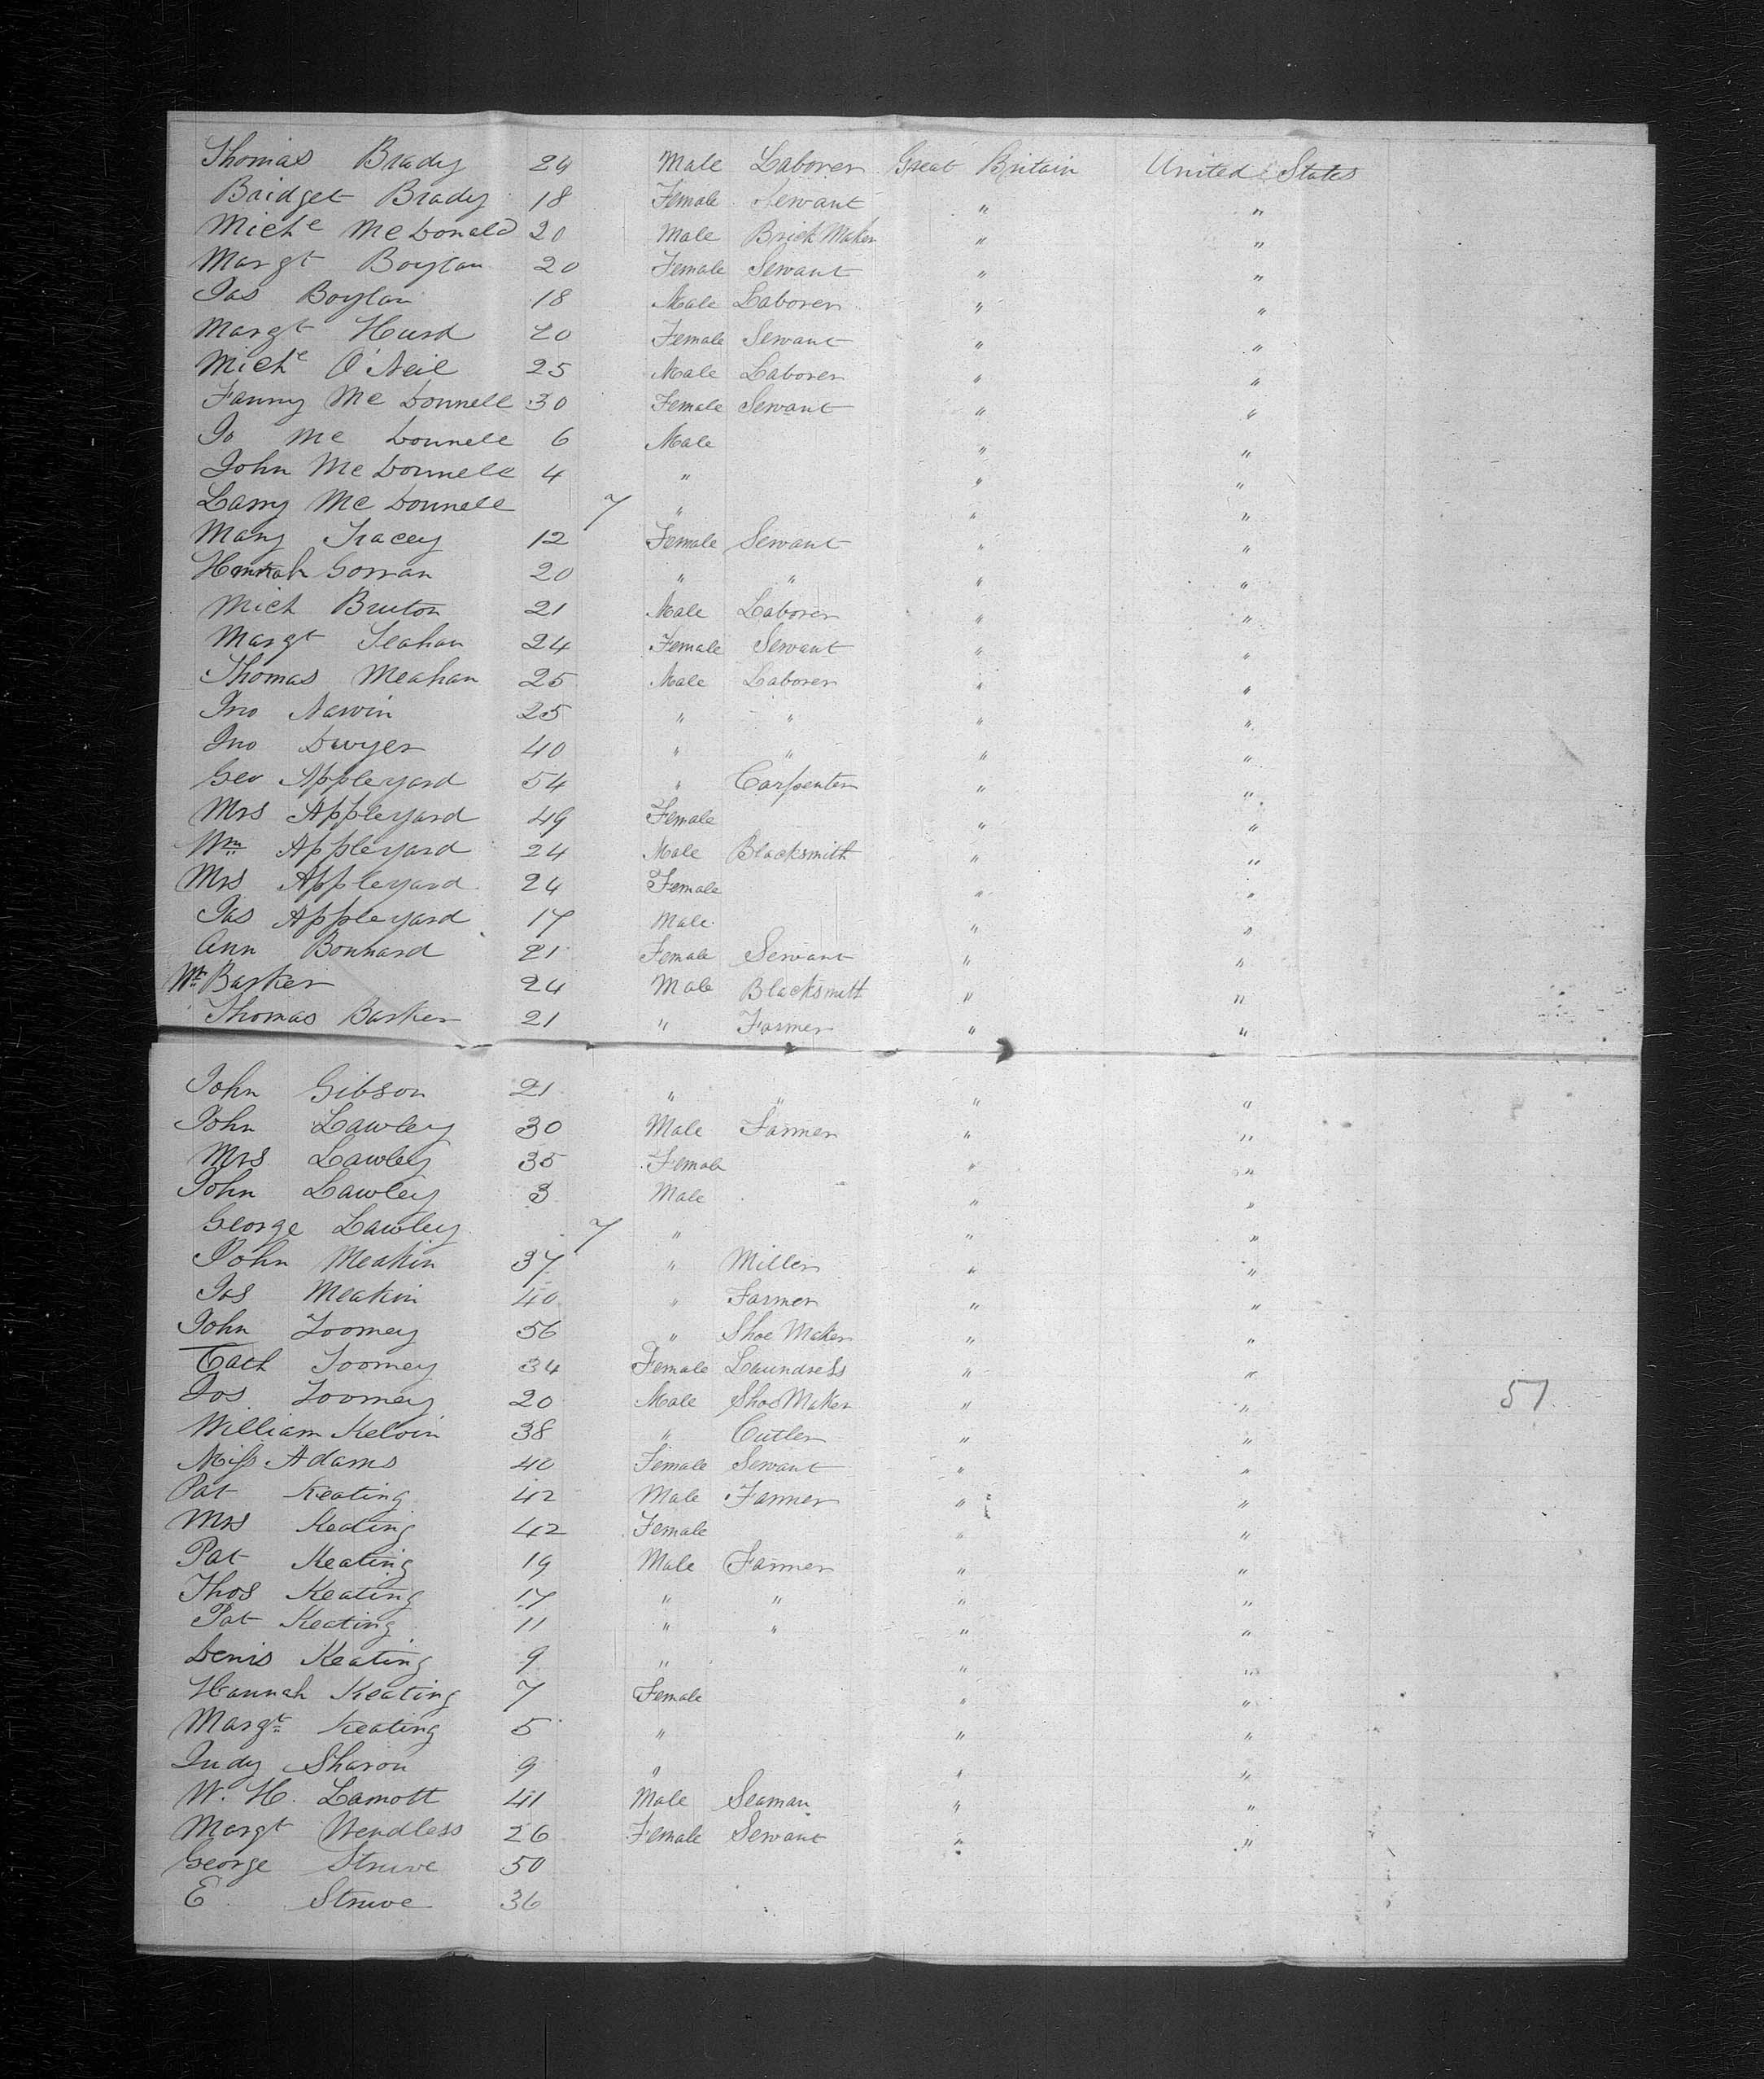 Thomas Brady 29 Male Laborer Great Britain United States
Bridget Brady 18 Female Servant " "
Miche McDonald 20 Male Brick Maker " "
Margt Boylan 20 Female Servant " "
Jas Boylan 18 Male Laborer " "
Margt Hurd 20 Female Servant " "
Miche O'Neil 25 Male Laborer " "
Fanny McDonnell 30 Female Servant " "
Jo McDonnell 6 Male " "
John McDonnell 4 " " "
Larry McDonnell 7 " " "
Mary Tracey 12 Female Servant " "
Hannah Gorran 20 " " " "
Mich Bruton 21 Male Laborer " "
Margt Leahan 24 Female Servant " "
Thomas Meahan 25 Male Laborer " "
Jno Narvin 25 " " " "
Jno Dwyer 40 " " " "
Geo Appleyard 54 " Carpenter " "
Mrs Appleyard 49 Female " "
Wm Appleyard 24 Male Blacksmith " "
Mrs Appleyard 24 Female " "
Jas Appleyard 17 Male " "
Ann Bonnard 21 Female Servant " "
Wm Barker 24 Male Blacksmith " "
Thomas Barker 21 " Farmer " "
John Gibson 21 " " " "
John Lawley 30 Male Farmer " "
Mrs Lawley 35 Female " "
John Lawley 3 Male " "
George Lawley 7 " " "
John Meakin 37 " Miller " "
Jas Meakin 40 " Farmer " "
John Toomey 56 " Shoe Maker " "
Cath Toomey 34 Female Laundress " "
Jos Toomey 20 Male Shoe Maker " " 57
William Kelvin 38 " Cutler " "
Miss Adams 40 Female Servant " "
Pat Keating 42 Male Farmer " "
Mrs Keating 42 Female " "
Pat Keating 19 Male Farmer " "
Thos Keating 17 " " " "
Pat Keating 11 " " " "
Denis Keating 9 " " "
Hannah Keating 7 Female " "
Margt Keating 5 " " "
Judy Sharon 9 " " "
W. H. Lamott 41 Male Seaman " "
Margt Wendless 26 Female Servant " "
George Struve 50
E Struve 36